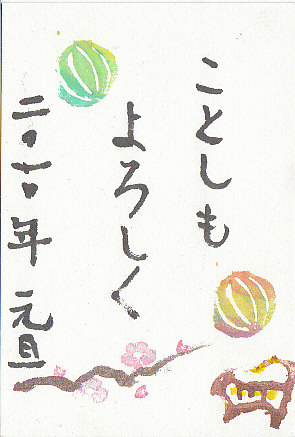 ことしも
よろしく
二〇一〇年 元旦